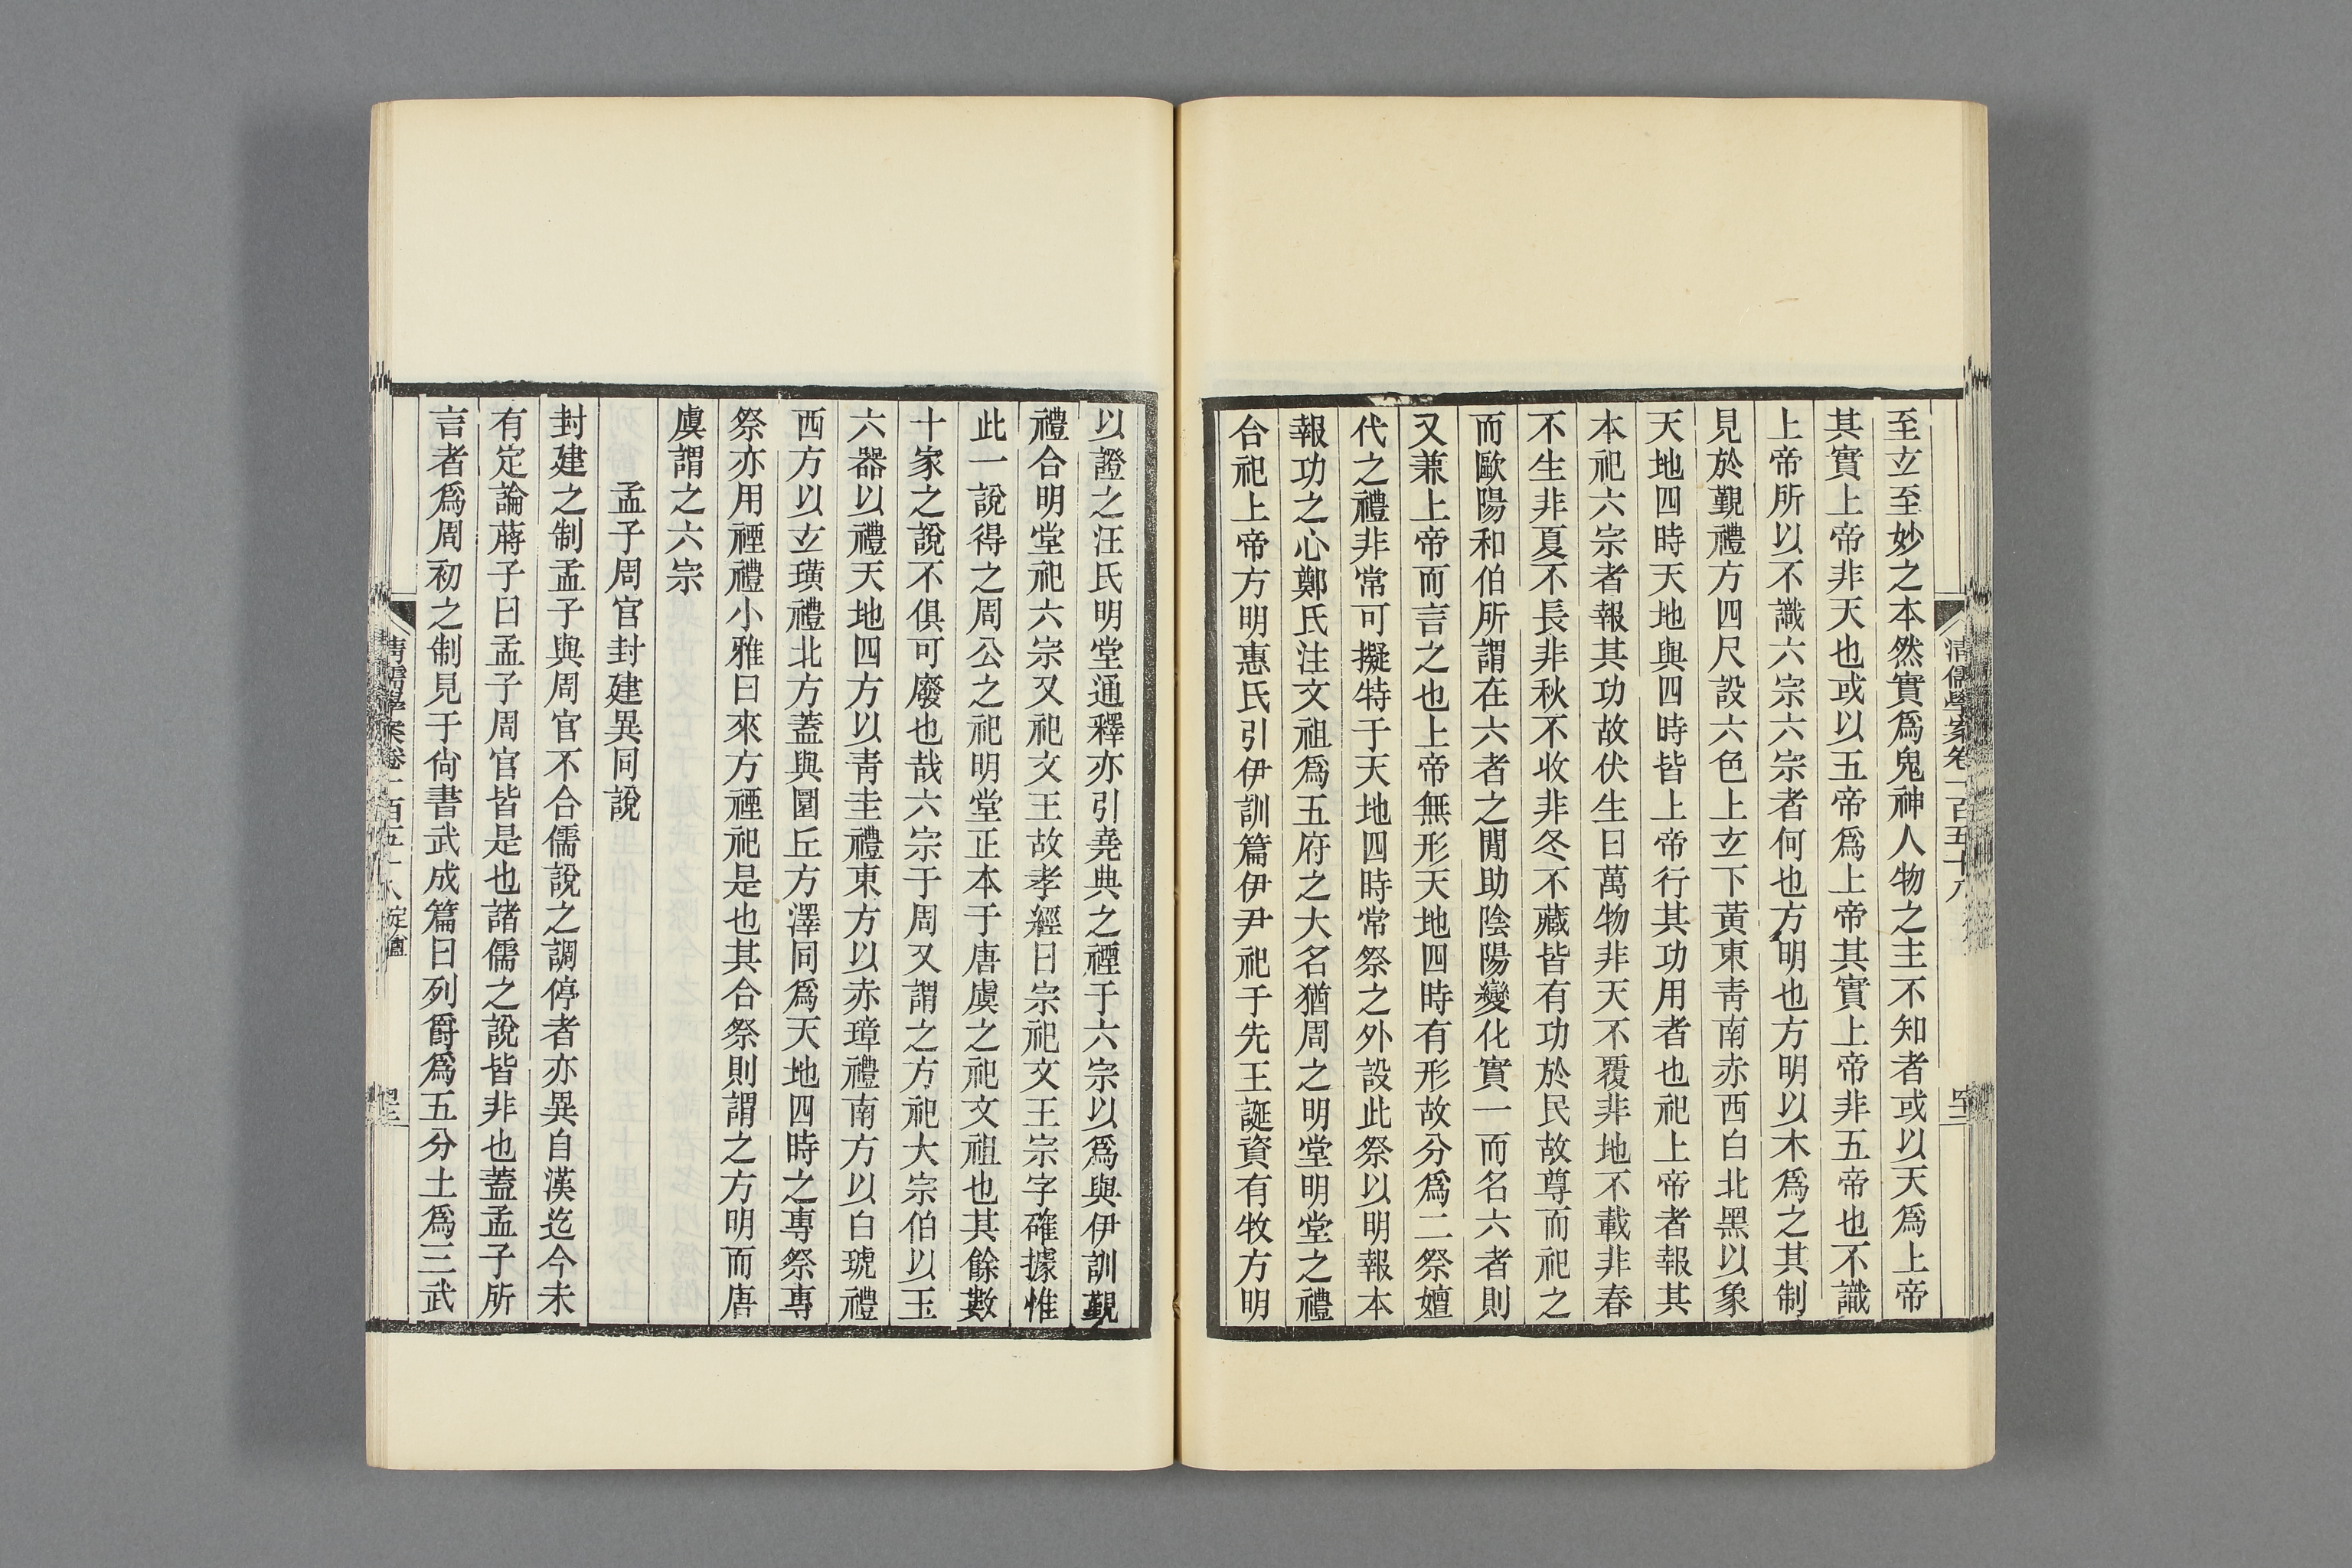 至玄至妙之本然實爲鬼神人物之主不知者或以天爲上帝
其實上帝非天也或以五帝爲上帝其實上帝非五帝也不識
上帝所以不識六宗六宗者何也方明也方明以木爲之其制
見於覲禮方四尺設六色上玄下黃東靑南赤西白北黑以象
天地四時天地與四時皆上帝行其功用者也祀上帝者報其
本祀六宗者報其功故伏生曰萬物非天不覆非地不載非春
不生非夏不長非秋不收非冬不藏皆有功於民故尊而祀之
而歐陽和伯所謂在六者之閒助陰陽變化實一而名六者則
又兼上帝而言之也上帝無形天地四時有形故分爲二祭嬗
代之禮非常可擬特于天地四時常祭之外設此祭以明報本
報功之心鄭氏注文祖爲五府之大名猶周之明堂明堂之禮
合祀上帝方明惠氏引伊訓篇伊尹祀于先王誕資有牧方明
清儒學案卷一百五十八
以證之汪氏明堂通釋亦引堯典之禋于六宗以爲與伊訓覲
禮合明堂祀六宗又祀文王故孝經曰宗祀文王宗字確據惟
此一說得之周公之祀明堂正本于唐虞之祀文祖也其餘數
十家之說不俱可廢也哉六宗于周又謂之方祀大宗伯以玉
六器以禮天地四方以靑圭禮東方以赤璋禮南方以白琥禮
西方以玄璜禮北方蓋與圜丘方澤同爲天地四時之專祭專
祭亦用禋禮小雅曰來方禋祀是也其合祭則謂之方明而唐
虞謂之六宗
孟子周官封建異同說
封建之制孟子與周官不合儒說之調停者亦異自漢迄今未
有定論蔣子曰孟子周官皆是也諸儒之說皆非也蓋孟子所
言者爲周初之制見于尙書武成篇曰列爵爲五分土爲三武
清儒學案卷一百五十八